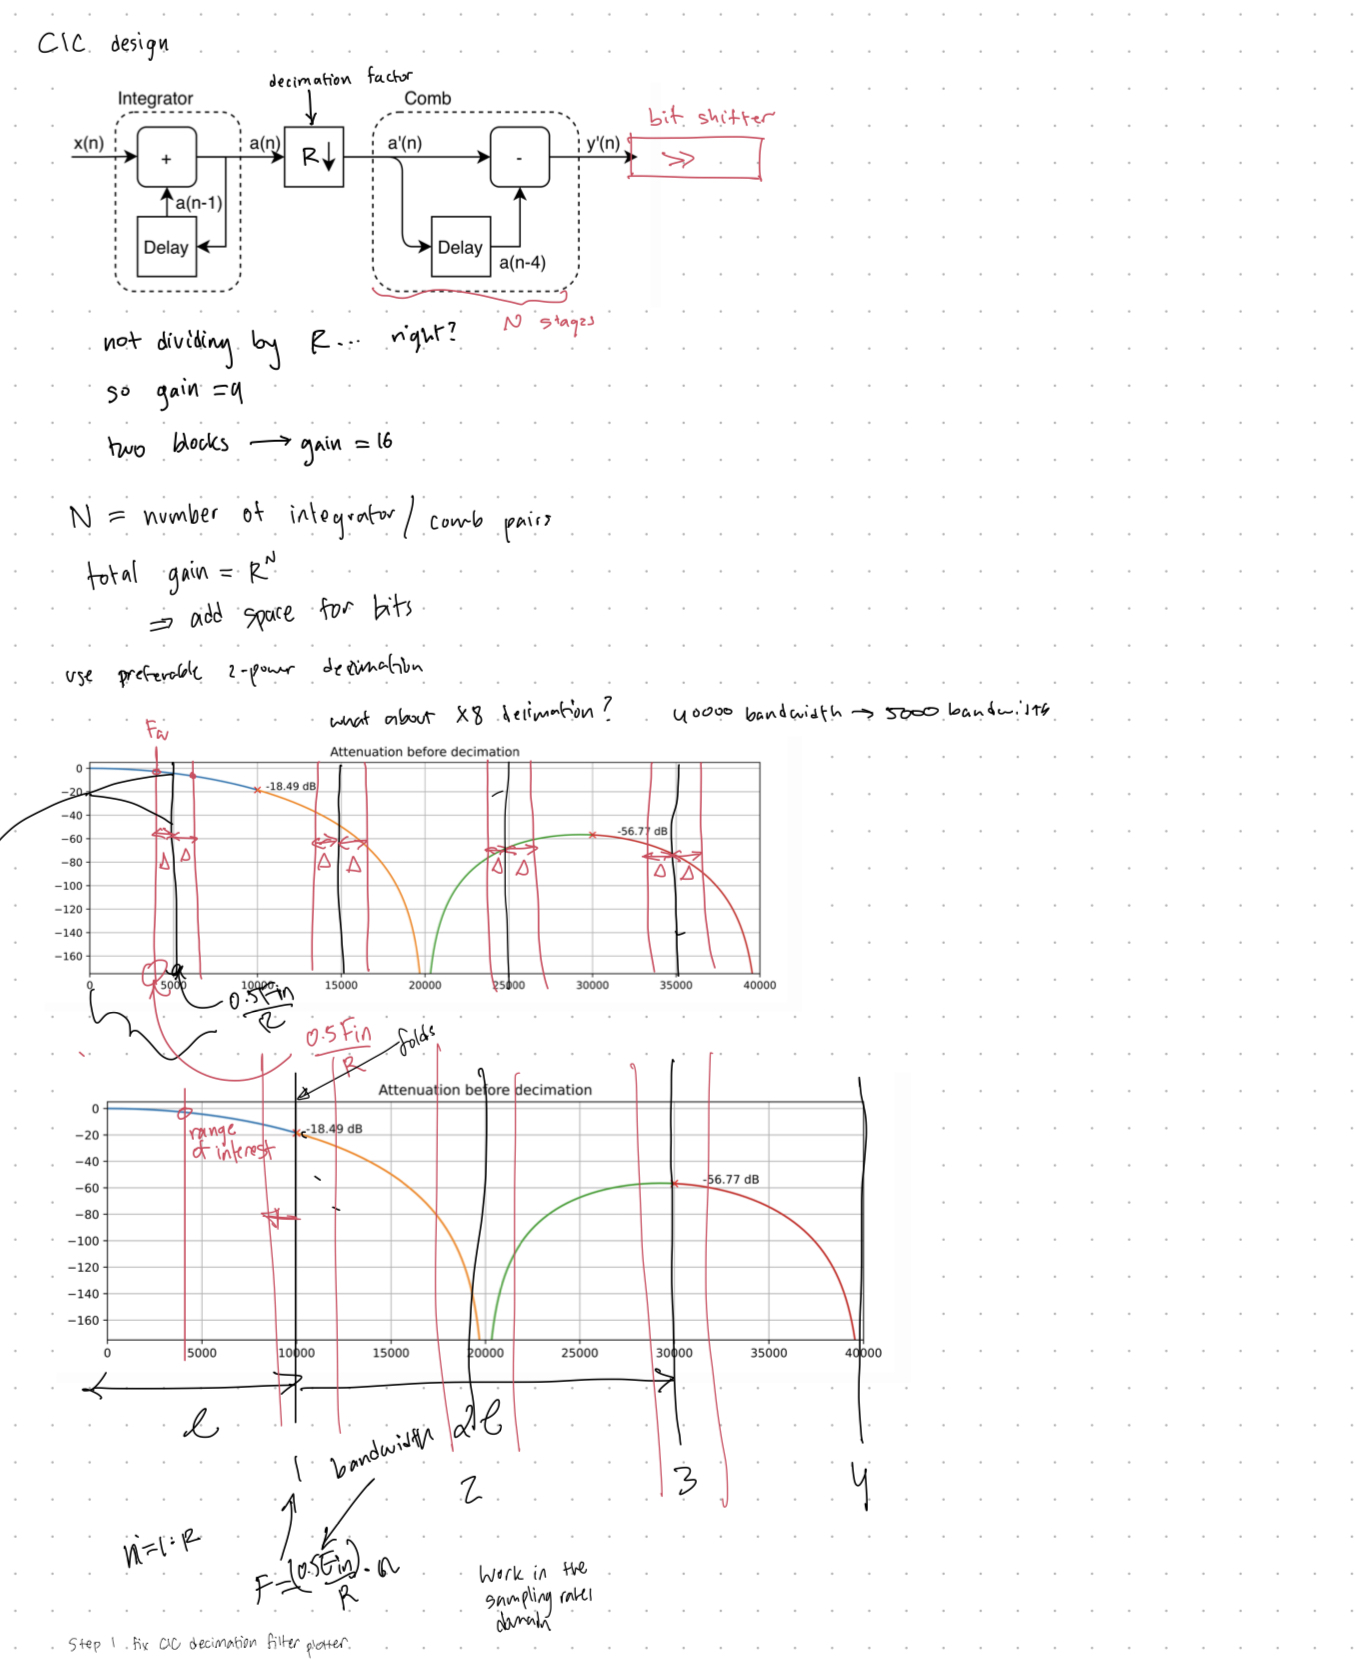 CIC design
decimation factor
Integrator
Comb
bit shifter
x(n)
+
a(n)
R↓
a'(n)
-
y'(n)
>>
a(n-1)
Delay
Delay
a(n-4)
N stages
not dividing by R... right?
so gain = 4
two blocks → gain = 16
N = number of integrator / comb pairs
total gain = R^N
⇒ add space for bits
use preferable 2-power decimation
what about x8 decimation? 40000 bandwidth → 5000 bandwidth
Attenuation before decimation
0
−20
−40
−60
−80
−100
−120
−140
−160
-18.49 dB
-56.77 dB
Δ Δ Δ Δ Δ Δ Δ Δ
0 5000 10000 15000 20000 25000 30000 35000 40000
0.5Fin
R
0.5Fin
R
folds
Attenuation before decimation
0
−20
−40
−60
−80
−100
−120
−140
−160
-18.49 dB
range
of interest
-56.77 dB
0 5000 10000 15000 20000 25000 30000 35000 40000
l
2l
1
bandwidth
2
3
4
n=1:R
F=(0.5Fin) · n
R
Work in the
sampling rates
domain
Step 1. fix CIC decimation filter plotter.